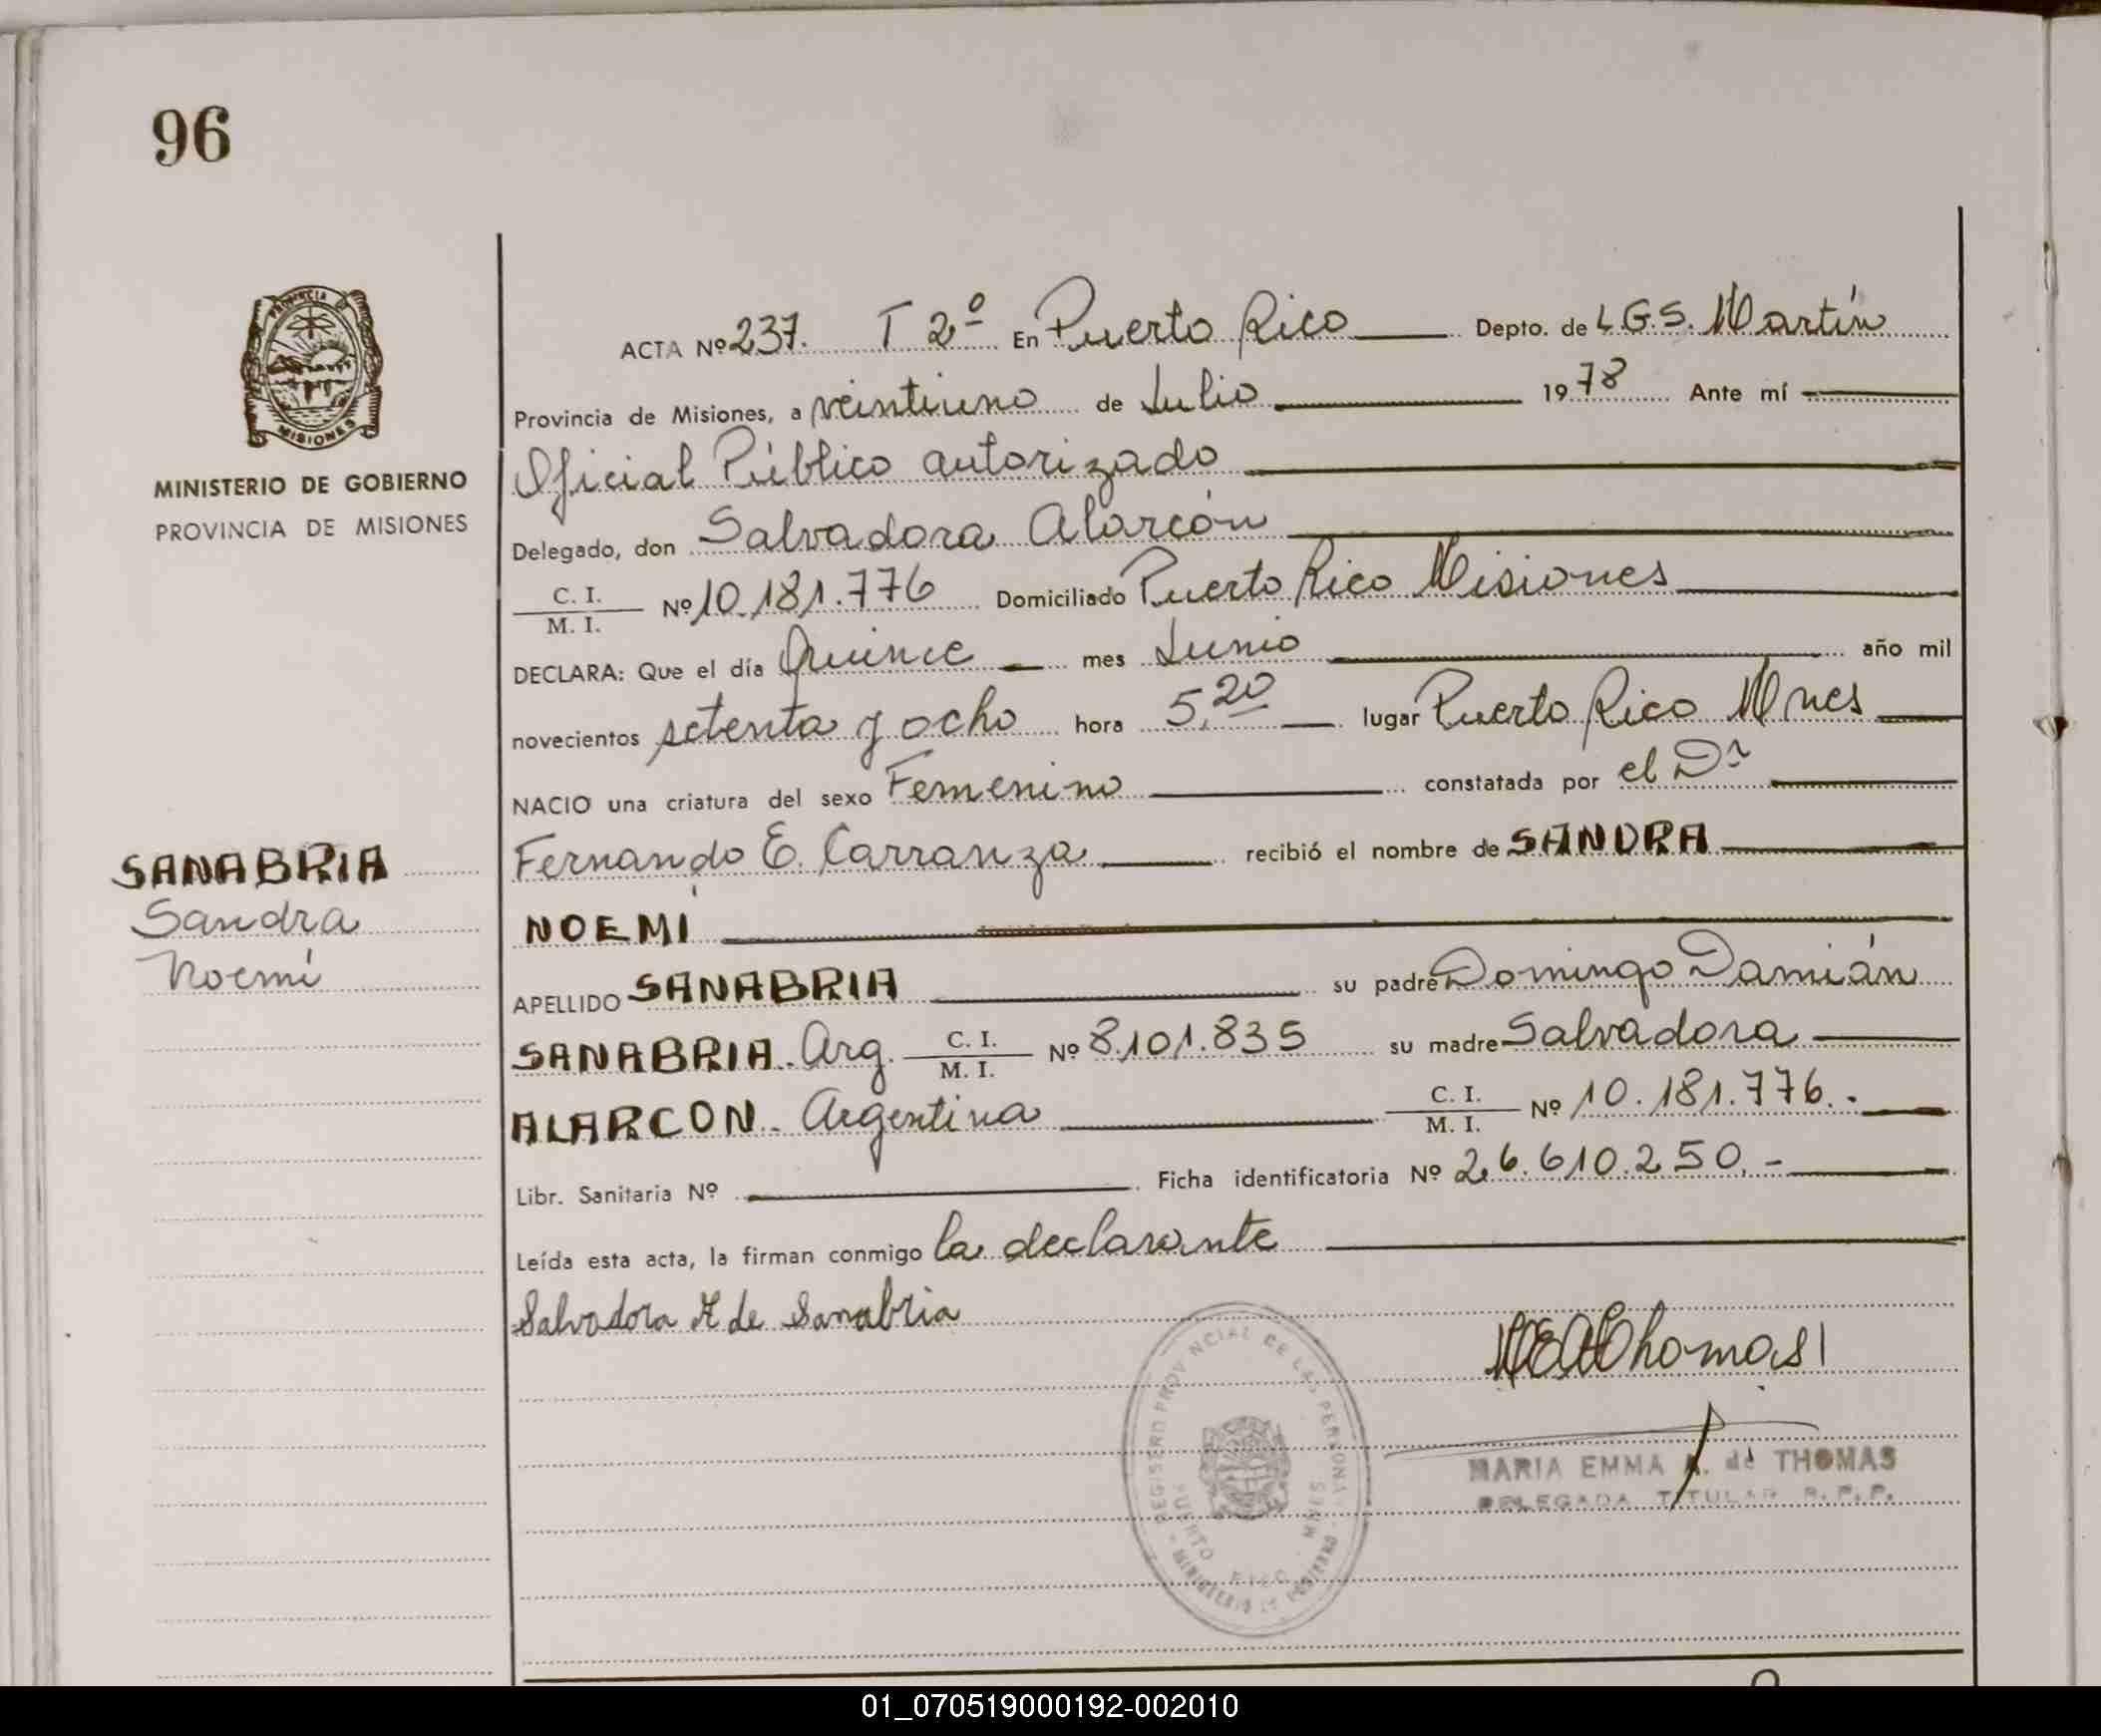 96
PROVINCIA
MISIONES
MINISTERIO DE GOBIERNO
PROVINCIA DE MISIONES
SANABRIA
Sandra
Noemí
ACTA Nº 237. T 2º En Puerto Rico Depto. de L.G.S. Martín
Provincia de Misiones, a veintiuno de Julio 1978 Ante mí
Oficial Público autorizado
Delegado, don Salvadora Alarcón
C. I.
M. I. Nº 10.181.776 Domiciliado Puerto Rico Misiones
DECLARA: Que el día Quince mes Junio año mil
novecientos setenta y ocho hora 5,20 lugar Puerto Rico Mnes
NACIO una criatura del sexo Femenino constatada por el Dr
Fernando E. Carranza recibió el nombre de SANDRA
NOEMÍ
APELLIDO SANABRIA su padre Domingo Damián
SANABRIA. Arg. C. I. M. I. Nº 8.101.835 su madre Salvadora
ALARCON. Argentina C. I. M. I. Nº 10.181.776.-
Libr. Sanitaria Nº Ficha identificatoria Nº 26.610.250.-
Leída esta acta, la firman conmigo la declarante
Salvadora A de Sanabria
REGISTRO PROVINCIAL DE LAS PERSONAS
PUERTO RICO MNES
MINISTERIO DE GOBIERNO
MARIA EMMA de THOMAS
DELEGADA TITULAR R. P. P.
01_070519000192-002010